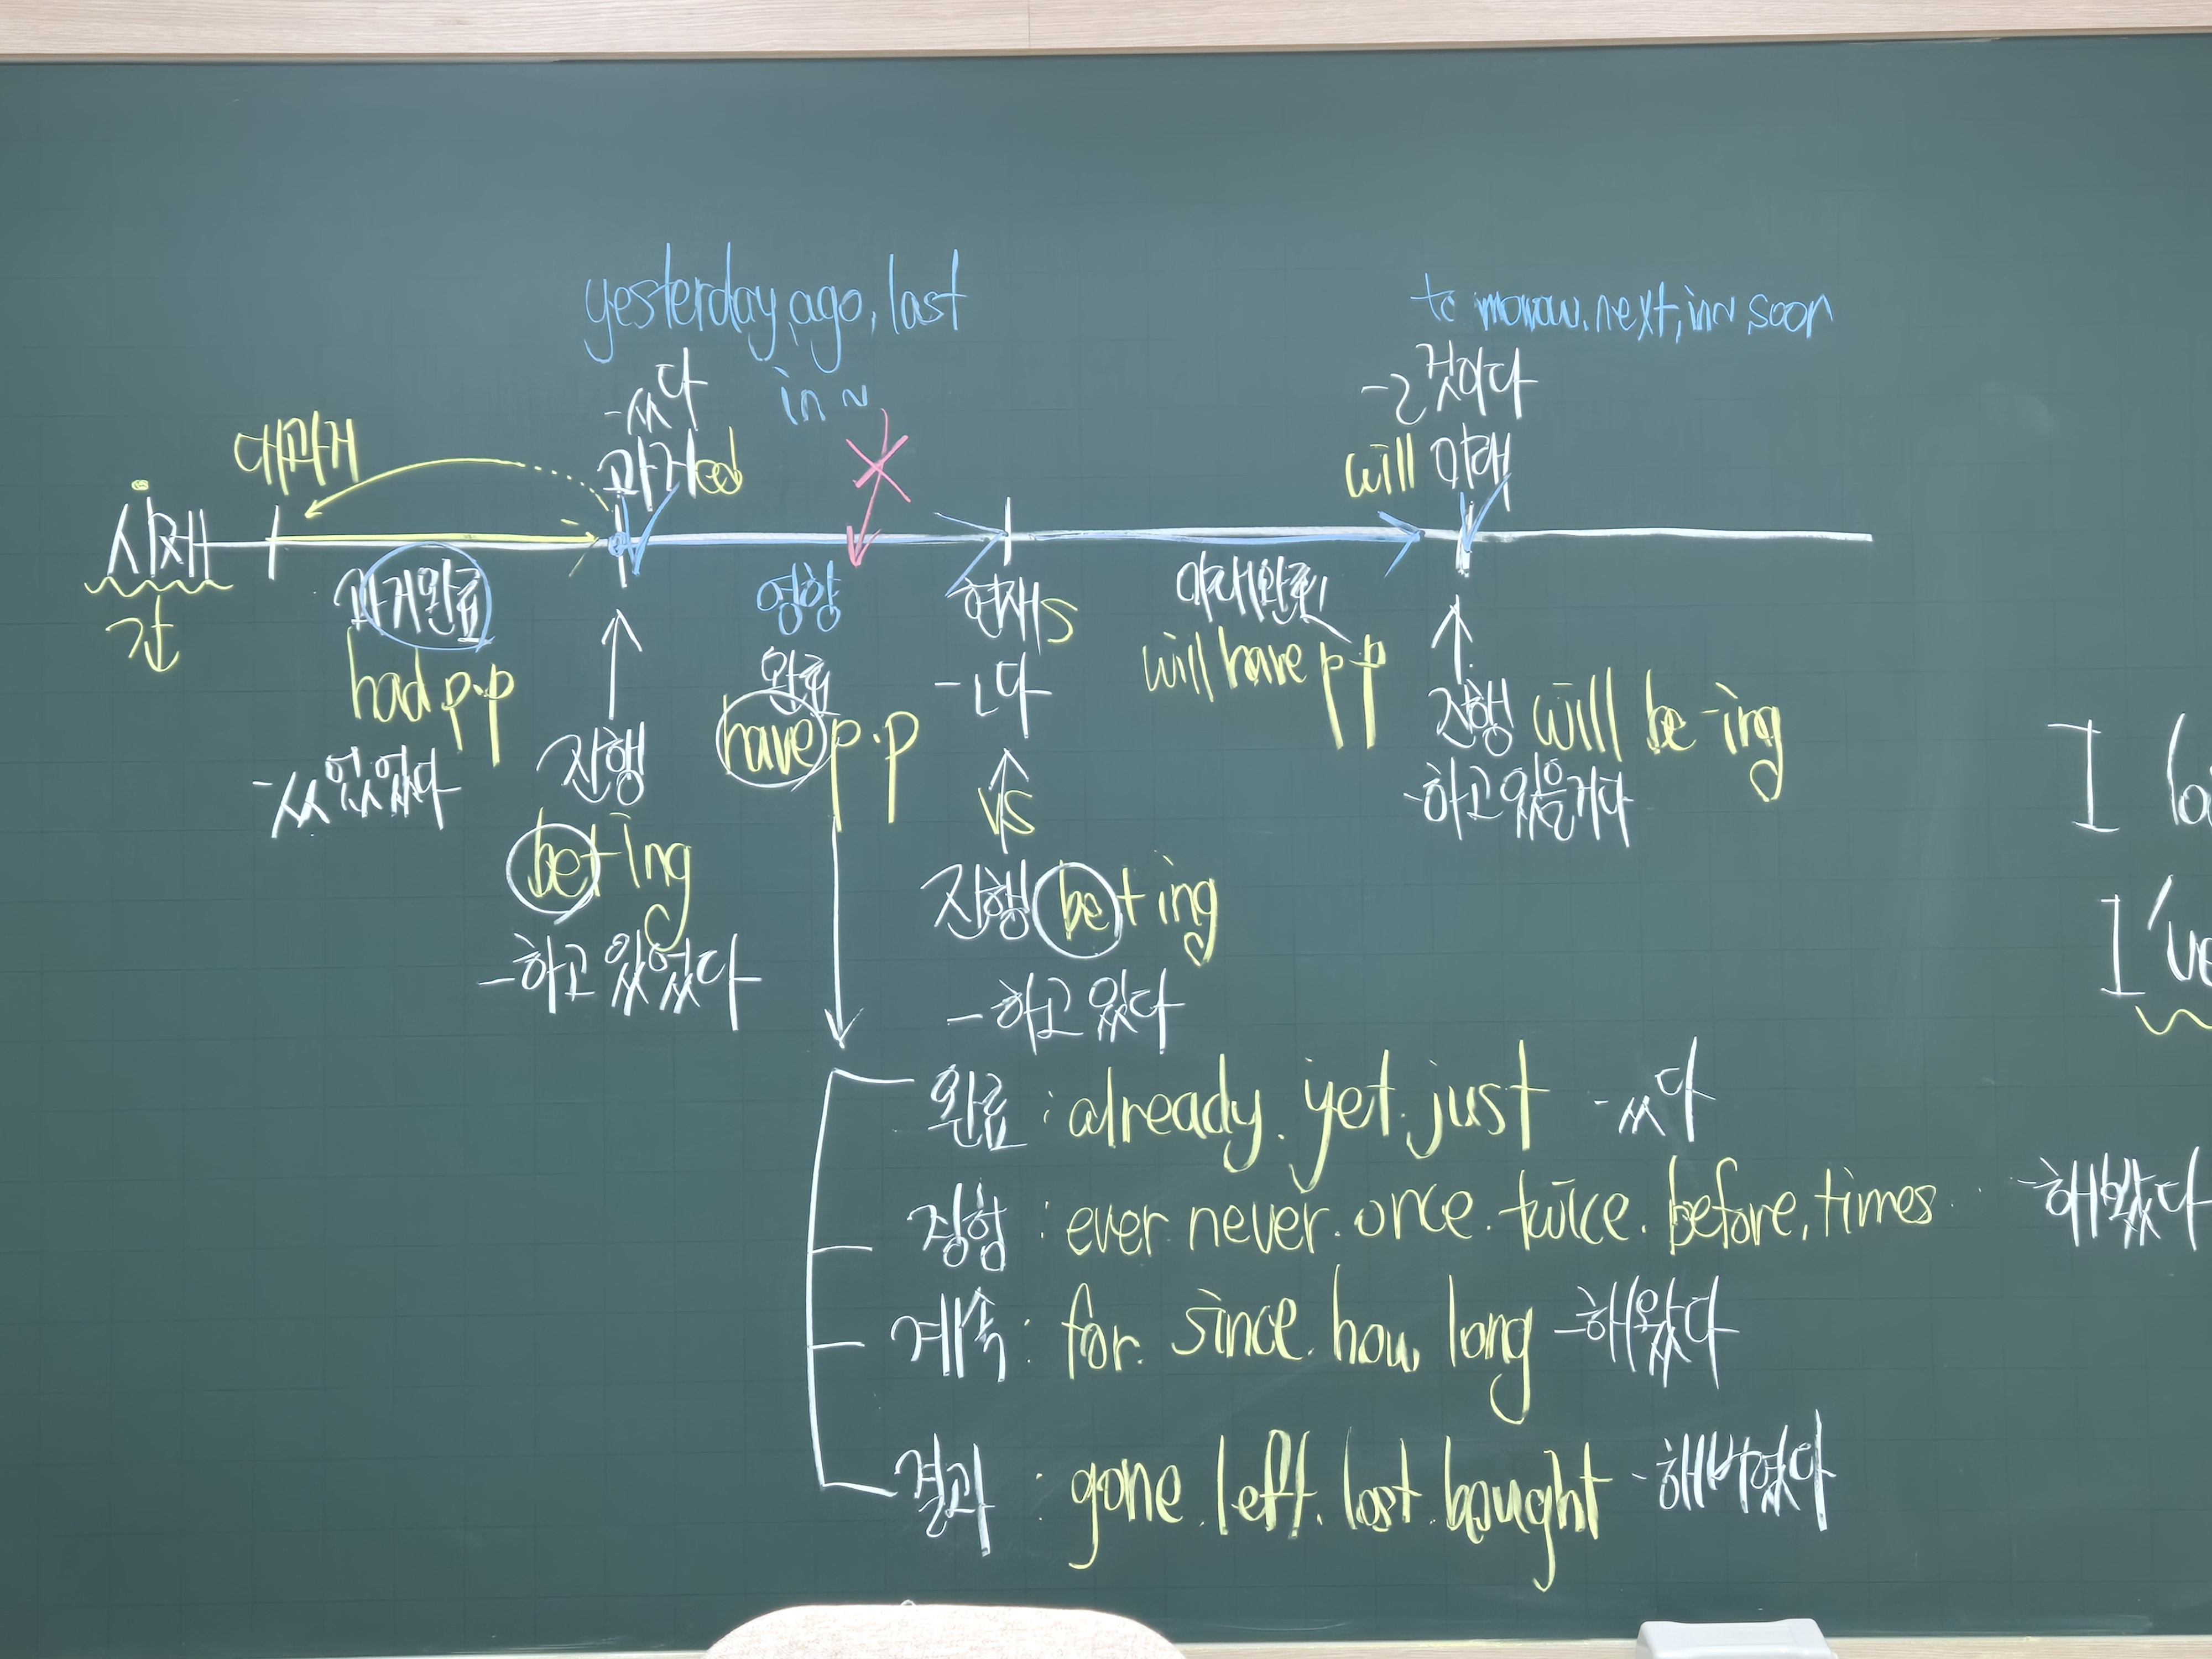 yesterday, ago, last
in ~
tomorrow. next, in~ soon
-ㅆ다
-ㄹ 것이다
대과거
과거 ed
will 미래
시제
간
과거완료
had p.p
-ㅆ었었다
영향
완료
have p.p
현재 s
-ㄴ다
미래완료
will have p.p
진행
be+ing
-하고 있었다
vs
진행 be+ing
-하고 있다
진행 will be -ing
-하고 있을거다
I lo
I've
완료 : already. yet. just -ㅆ다
경험 : ever never. once. twice. before, times. -해봤다
계속 : for. since. how long -해왔다
결과 : gone. left. lost. bought -해버렸다